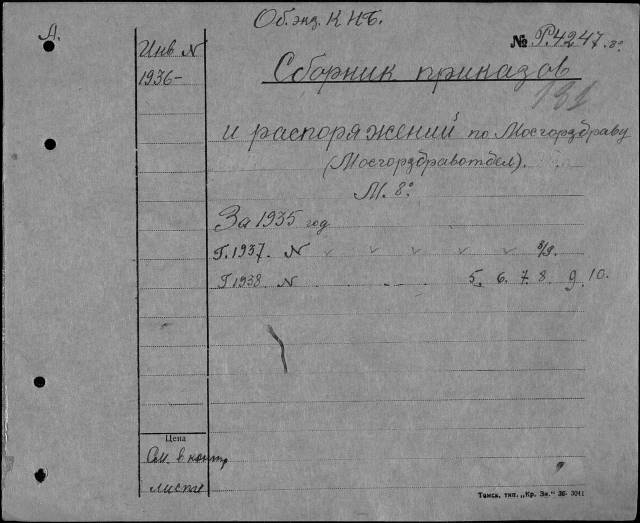 Об. экз. КНБ.
А.
№ Р.4247.8°
Инв N
1936-
Сборник приказов
131
и распоряжений по Мосгорздраву
(Мосгорздравотдел).
М. 8°
За 1935 год
Г. 1937. N v v v v v 8/9.
Г 1938 N 5. 6. 7. 8. 9. 10.
Цена
См. в контр
листке
Томск, тип. „Кр. Зн.“ 36- 3041